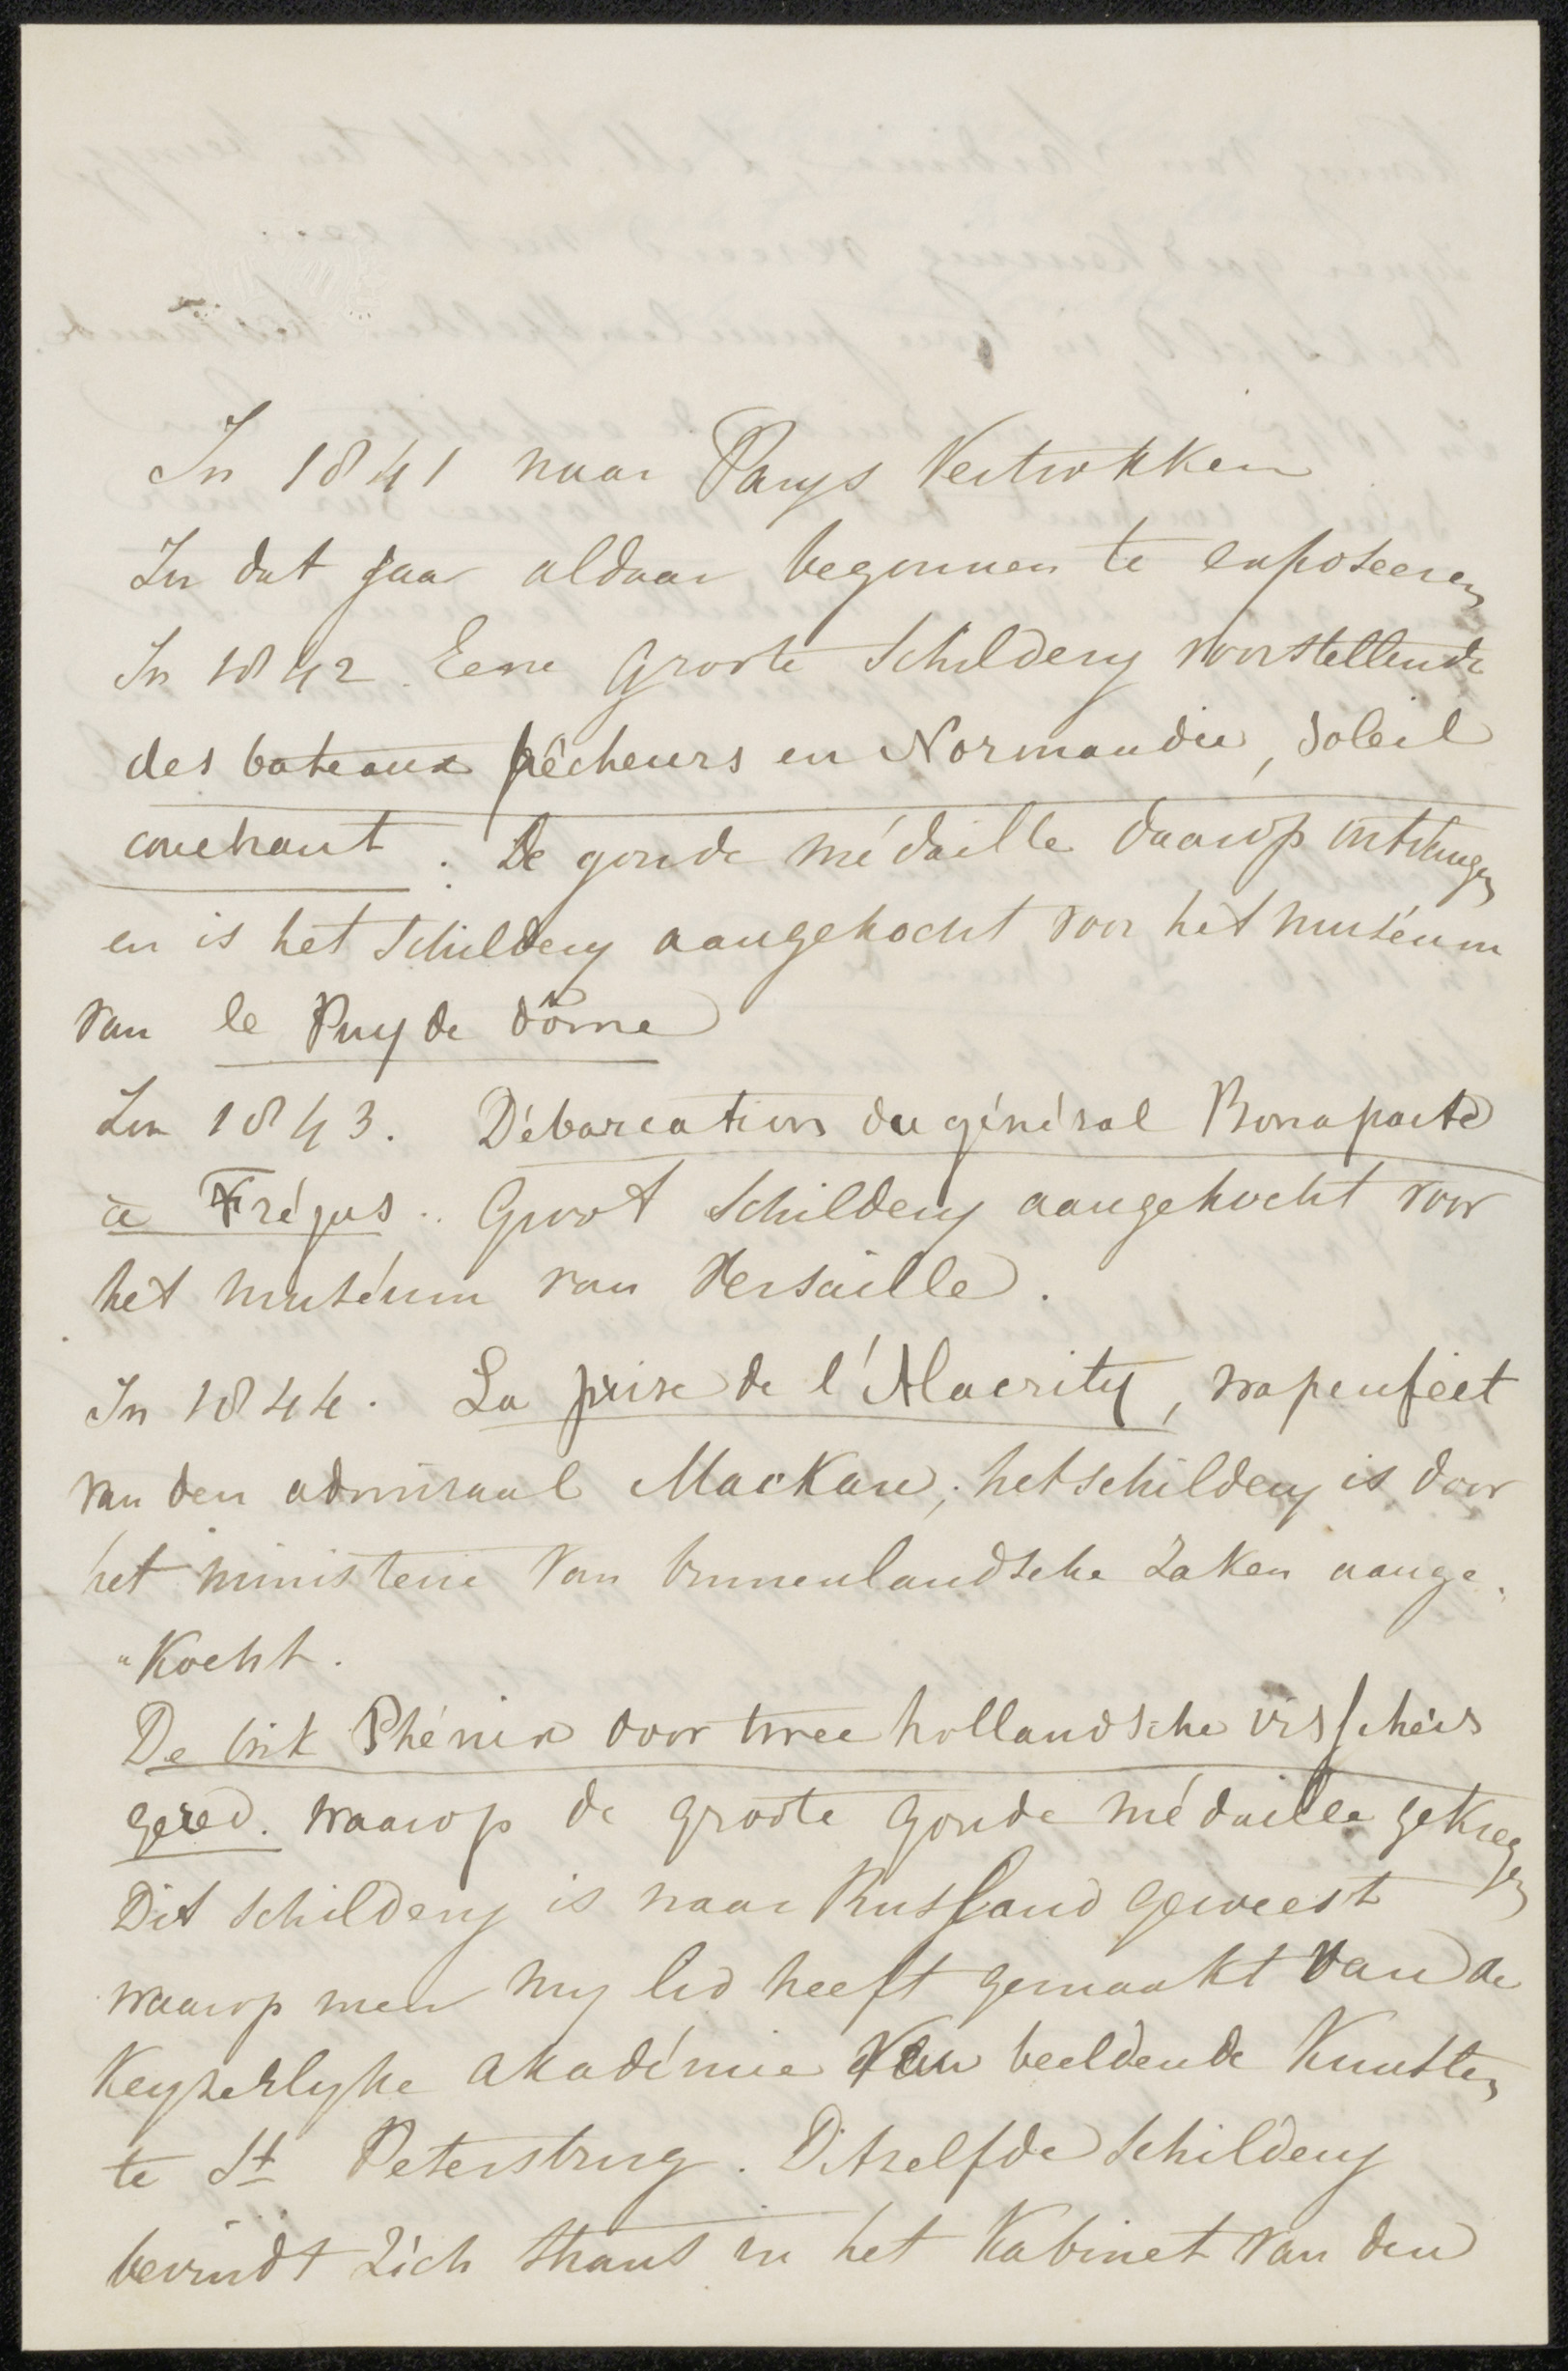 In 1841 naar Parys Vertrokken
In dat jaar aldaar begonnen te exposeeren
In 1842. Eene Groote Schildery voorstellende
des bateaux pêcheurs en Normandie, soleil
couchant. De goude médaille daarop ontvangen
en is het schildery aangekocht voor het muséum
van le Puy de dôme
In 1843. Débarcation du général Bonaparte
à Fréjus. Groot schildery aangekocht voor
het muséum van Versaille.
In 1844. La prise de l'Alacrity, wapenfeit
van den admiraal Mackau; het schildery is door
het ministerie van binnenlandsche Zaken aange-
"kocht.
De brik Phénix door twee hollandsche visschers
gered. waarop de groote goude médaille gekregen
Dit schildery is naar Rusland geweest
waarop men my lid heeft gemaakt van de
Keyzerlyke akadémie van beeldende Kunsten
te St Petersbrug. Ditzelfde schildery
bevindt zich thans in het Kabinet van den